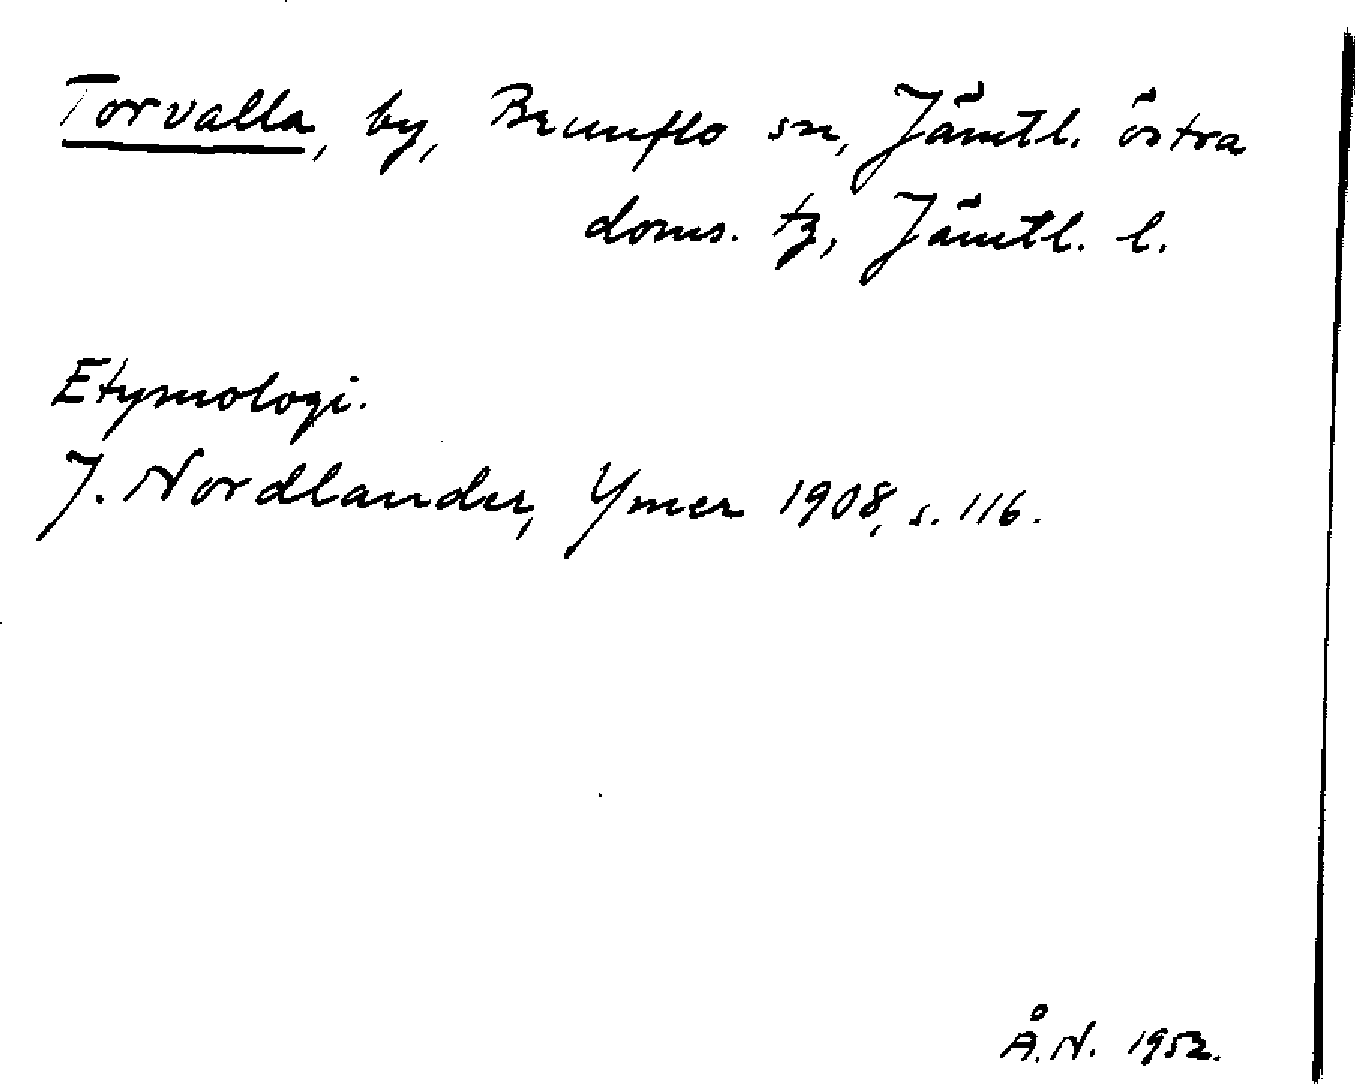 Torvalla, by, Brunflo sn, Jämtl. östra
doms. tg, Jämtl. l.
Etymologi.
J. Nordlander, Ymer 1908, s. 116.
Å.N. 1952.